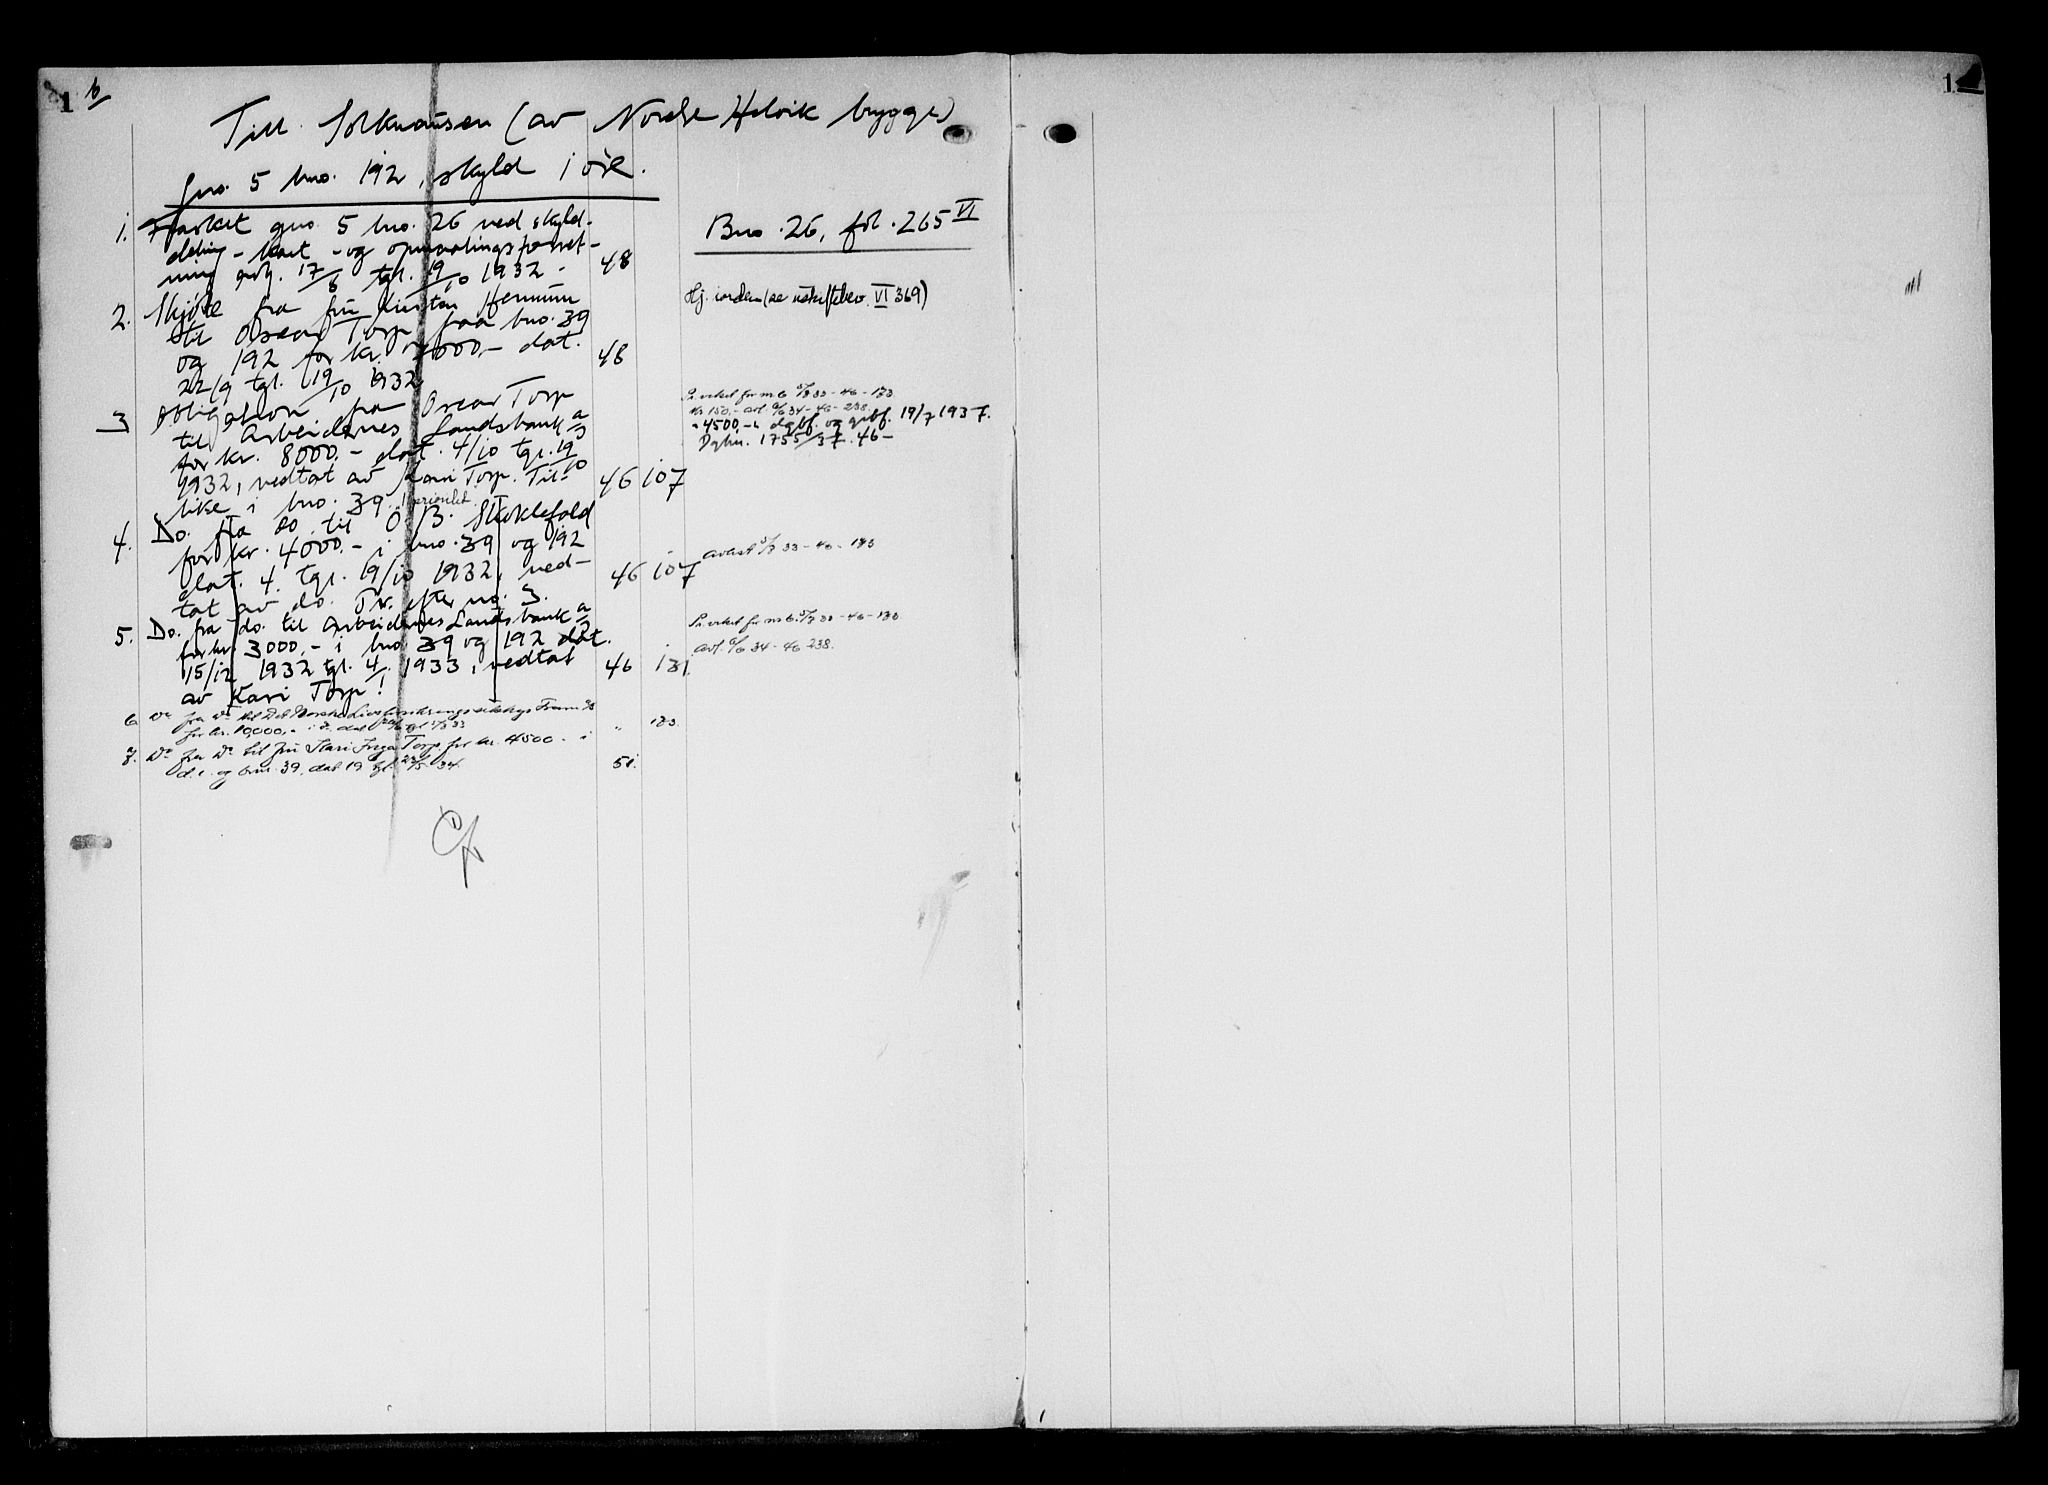 1 b
Till. Solknausen (av Nordre Helvik brygge)
gno. 5 bno. 192, skyld 1 øre.
1. Fraskilt gno. 5 bno. 26 ved skyld-
deling - kart - og opmaalingsforret-
ning avh. 17/6 tgl. 19/10 1932 - 48
Bno. 26, fol. 265 VI
2. Skjøte fra fru Kirsten Hennum
til Oscar Torp paa bno. 39
og 192 for kr. 000,- dat.
22/9 tgl. 19/10 1932 48
Hj. iorden (se utskiftbev. VI 369)
3 Obligation fra Oscar Torp
til Arbeidernes Landsbank a/s
for kr. 8000.- dat. 4/10 tgl. 19/10
1932, vedtat av Kari Torp. Til-
like i bno. 39. 46 107
Pr. veket for no 6 /3 33 - 46 - 183
Kr 150,- avl. /6 34 - 46 - 238
" 4500,- dgbf. og grbf. 19/7 1937.
Dgbn. 1755/37. 46 -
4. Do. fra do. til O. B. Skeklefald
for kr. 4000.- i bno. 39 og 192
dat. 4. tgl. 19/10 1932, ved-
tat av do. Pr. efter no. 3. 46 107
avlest /3 33 - 46 - 183
5. Do. fra do. til Arbeidernes Landsbank a/s
for kr. 3000,- i bno 39 og 192 dat.
15/12 1932 tgl. 4/1 1933, vedtat
av Kari Torp! 46 131
Pr. veket for no 6. /3 33 - 46 - 183
avl. /6 34 - 46 238.
6 Do fra do til Det Norske Livsforsikringsselskap Fram a/s
for kr. 10000,- i do. dat tgl. /3 33 " 183
7. Do fra do til fru Kari Inga Torp for kr. 4500 - i
d. e. og bnr. 39, dat 19 tgl. 23/5 34. 51.
1